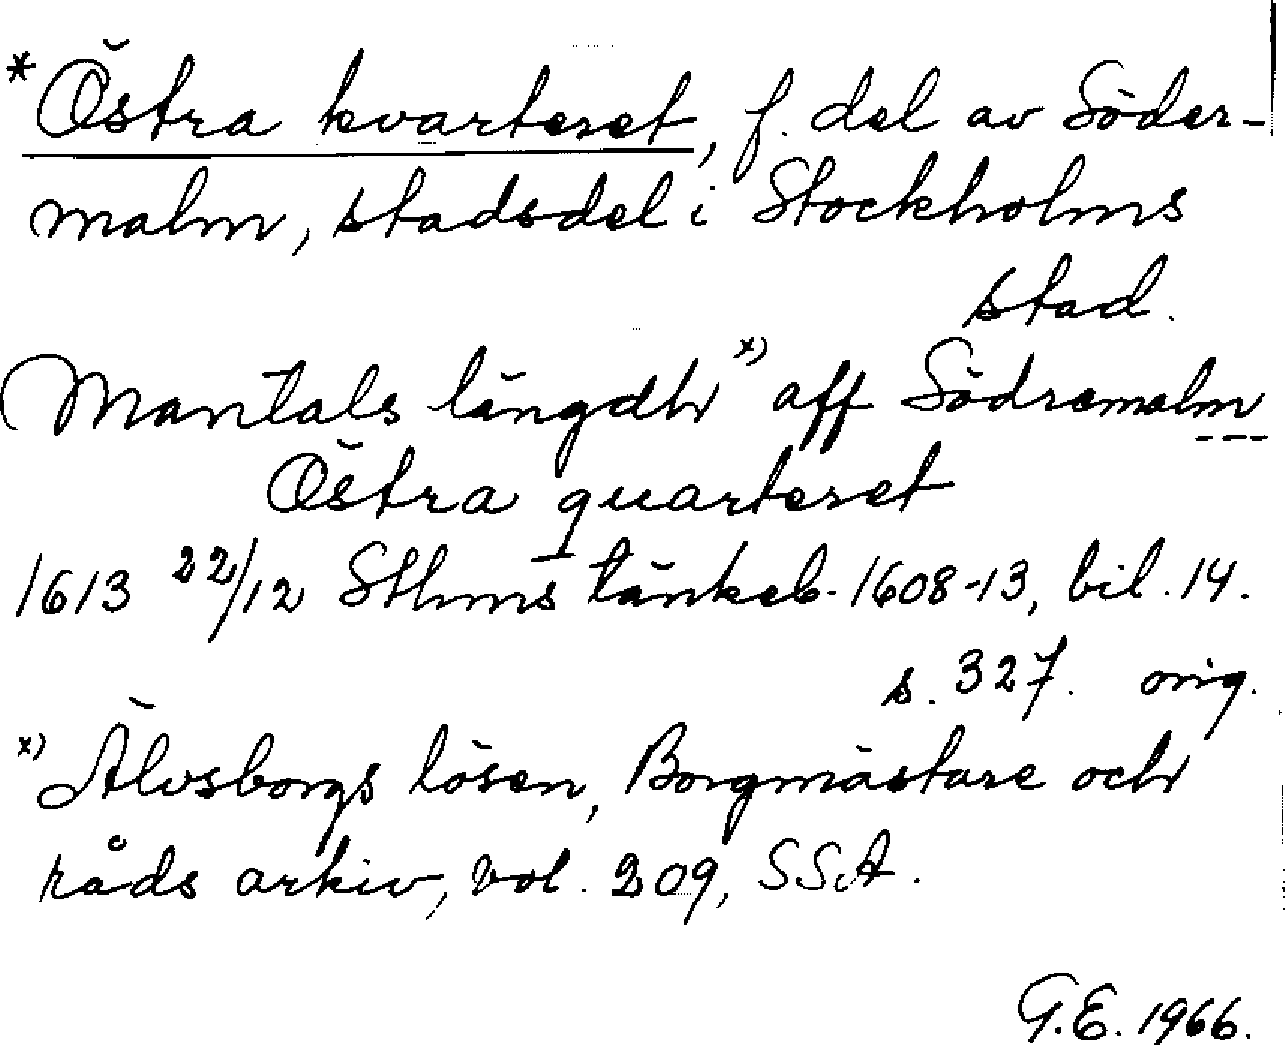 *Östra kvarteret, f. del av Söder-
malm, stadsdel i Stockholms
stad.
Mantals längdh x) aff Södramalm
Östra quarteret
1613 22/12 Sthms tänkeb. 1608-13, bil. 14.
s. 327. orig.
x) Älvsborgs lösen, Borgmästare och
råds arkiv, vol. 209, SSA.
G.E. 1966.